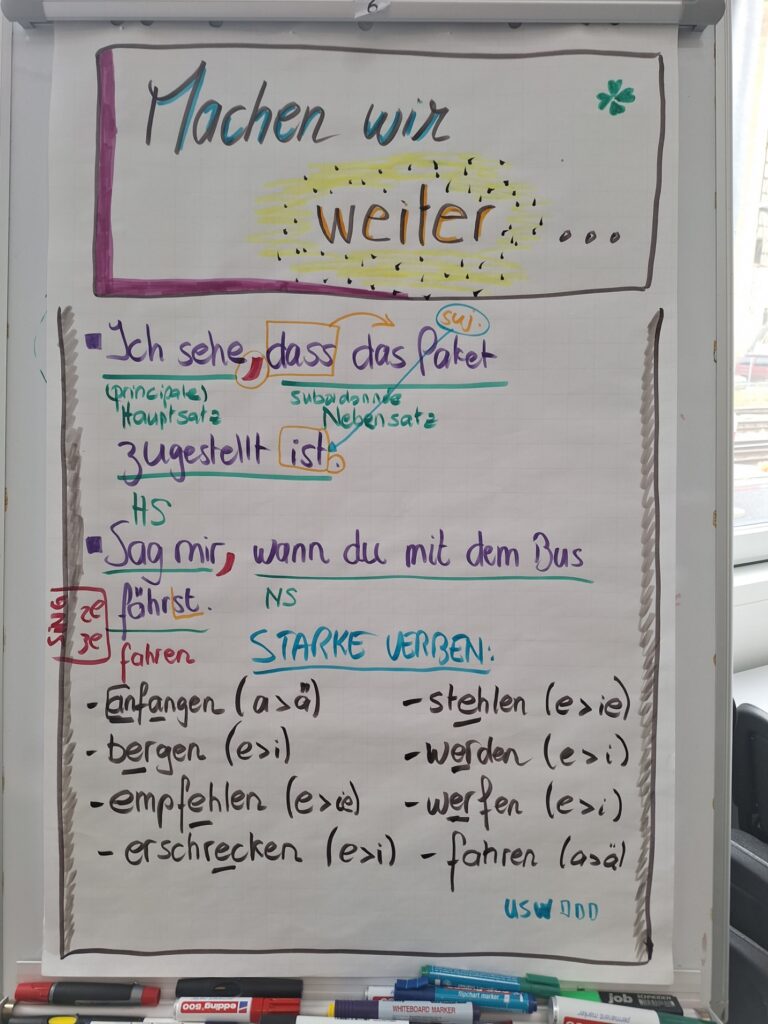 6
Machen wir
weiter ...
suj.
Ich sehe, dass das Paket
(principale) subordonnée
Hauptsatz Nebensatz
zugestellt ist.
HS
Sag mir, wann du mit dem Bus
fährst. NS
SING 2e
3e
fahren STARKE VERBEN:
- anfangen (a>ä) - stehlen (e>ie)
- bergen (e>i) - werden (e>i)
- empfehlen (e>ie) - werfen (e>i)
- erschrecken (e>i) - fahren (a>ä)
usw
edding 500
flipchart marker
WHITEBOARD MARKER
job
permanent marker